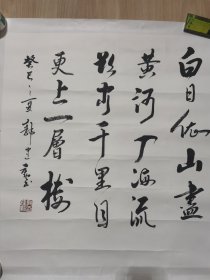 白日依山盡
黄河入海流
欲窮千里目
更上一層樓
癸巳之夏